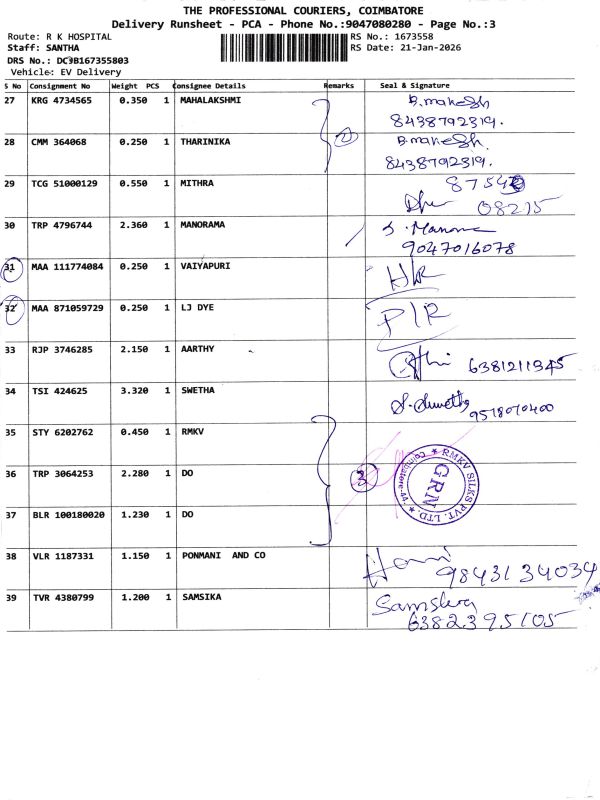 THE PROFESSIONAL COURIERS, COIMBATORE
Delivery Runsheet - PCA - Phone No.:9047080280 - Page No.:3
Route: R K HOSPITAL
RS No.: 1673558
Staff: SANTHA
RS Date: 21-Jan-2026
DRS No.: DC3B167355803
Vehicle: EV Delivery
S No Consignment No Weight PCS Consignee Details Remarks Seal & Signature
27 KRG 4734565 0.350 1 MAHALAKSHMI B.mahesh
8438792319.
28 CMM 364068 0.250 1 THARINIKA 2 B.mahesh.
8438792319.
29 TCG 51000129 0.550 1 MITHRA
08215
30 TRP 4796744 2.360 1 MANORAMA
9047016078
31 MAA 111774084 0.250 1 VAIYAPURI
32 MAA 871059729 0.250 1 LJ DYE
33 RJP 3746285 2.150 1 AARTHY 6381211345
34 TSI 424625 3.320 1 SWETHA S.Swetha
9578070400
35 STY 6202762 0.450 1 RMKV
36 TRP 3064253 2.280 1 DO 3 RMKV SILKS PVT. LTD. * Coimbatore * GRN
37 BLR 100180020 1.230 1 DO
38 VLR 1187331 1.150 1 PONMANI AND CO
9843134034
39 TVR 4380799 1.200 1 SAMSIKA
6382395105